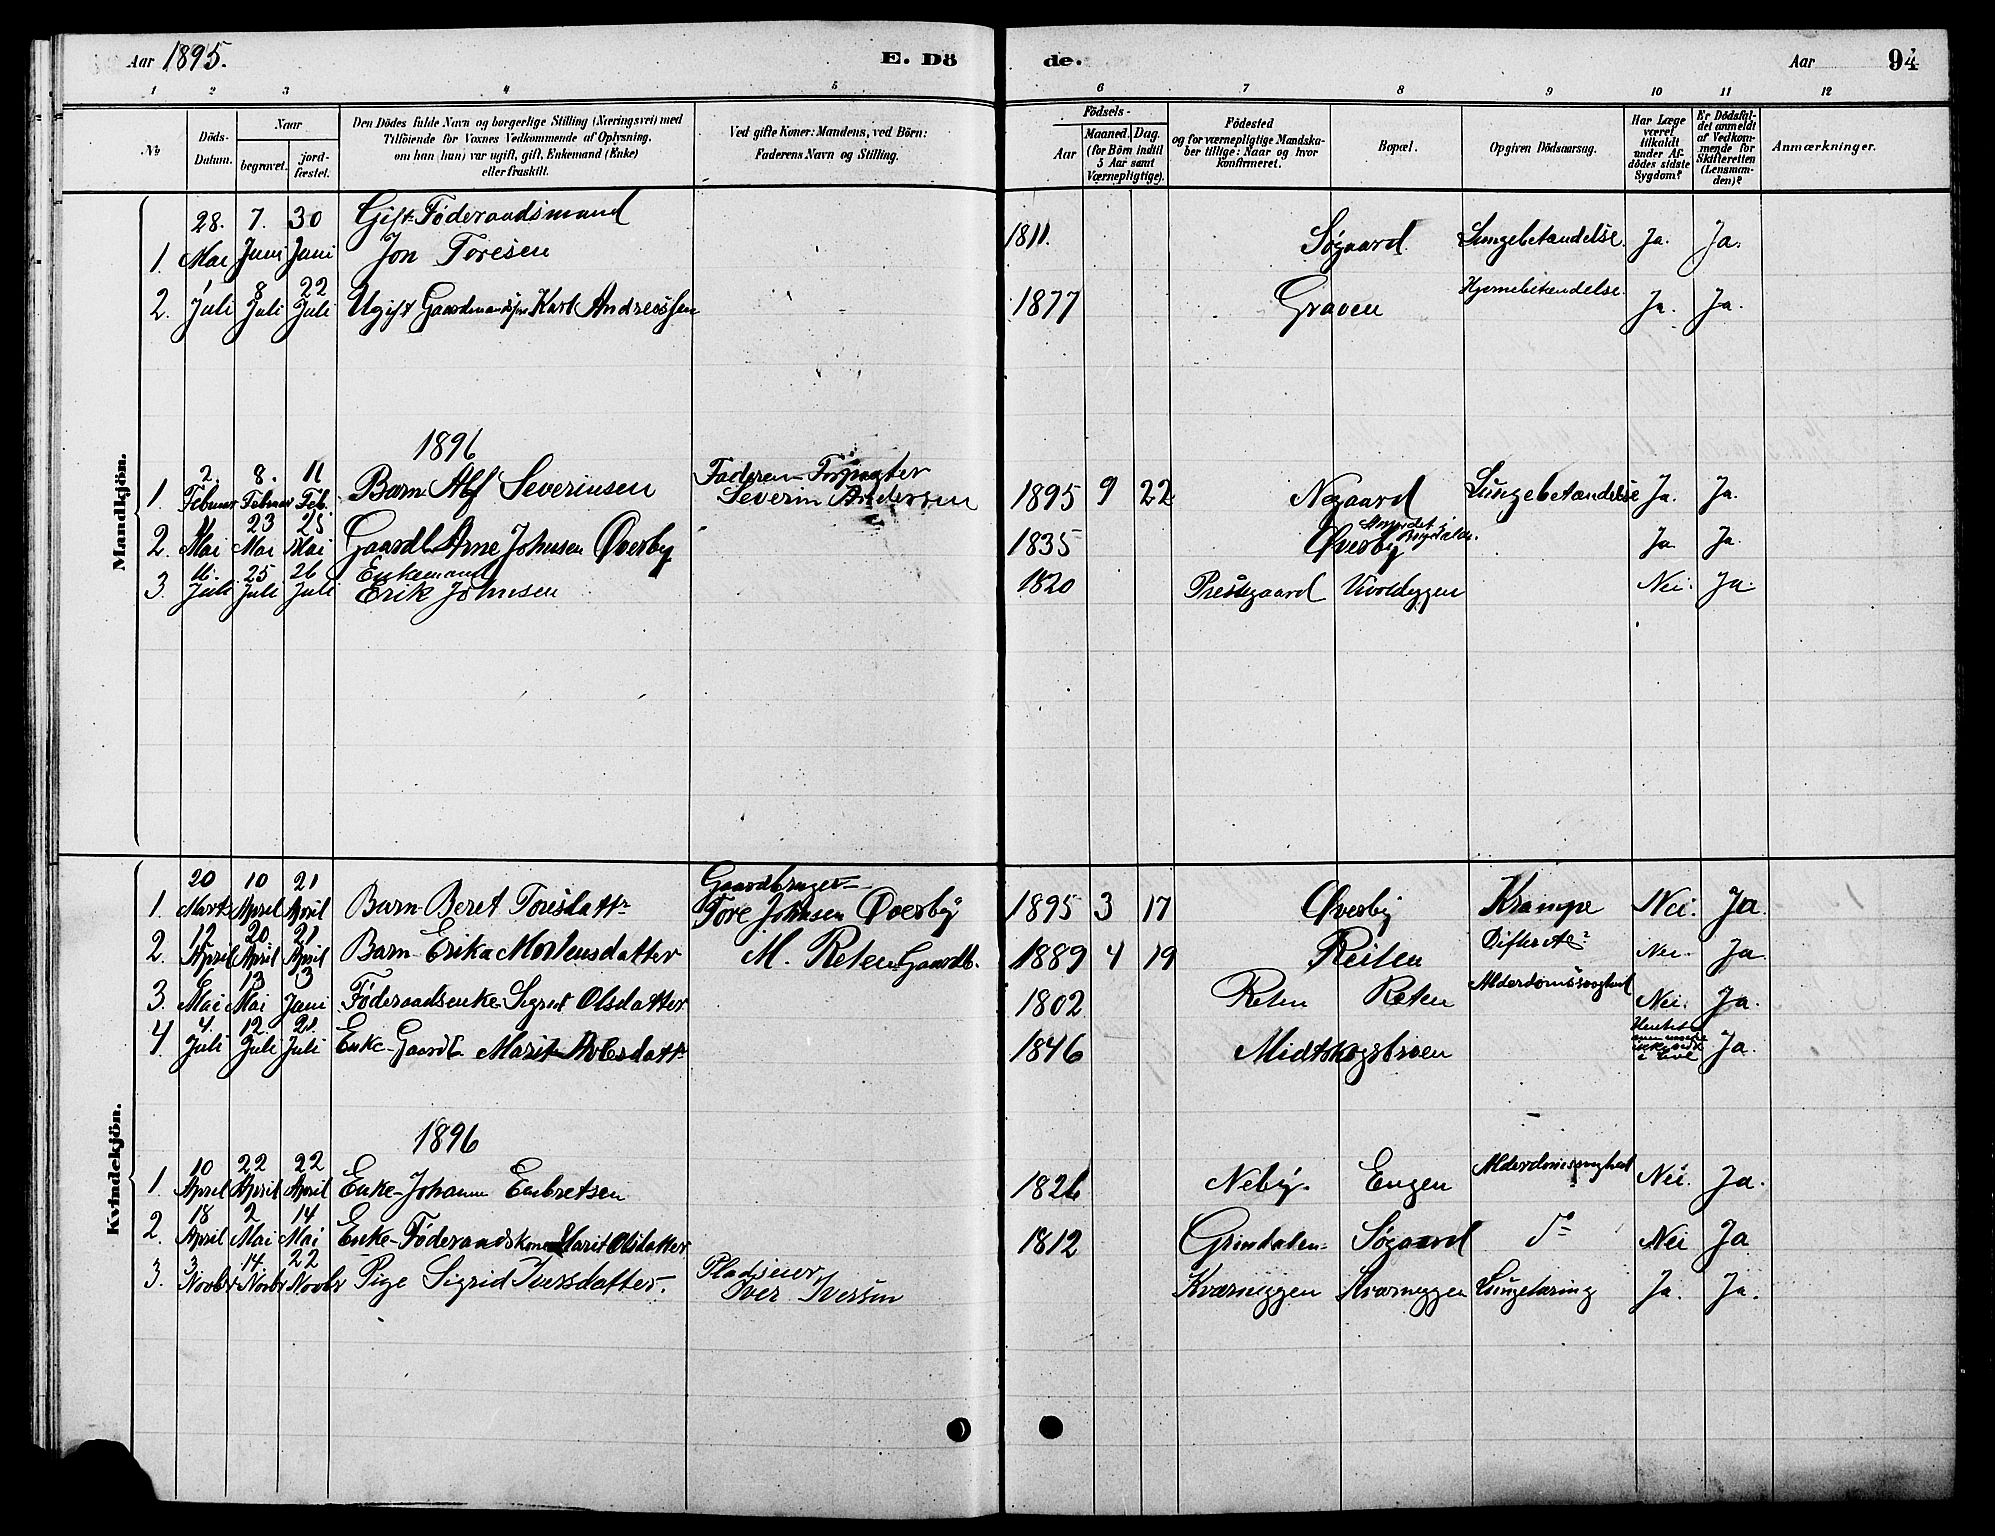 Aar 1895.
E. Dö
de.
Aar
94
1 2 3 4 5 6 7 8 9 10 11 12
No
Döds-Datum.
Naar
begravet.
jord-fæstet.
Den Dödes fulde Navn og borgerlige Stilling (Næringsvei) med
Tilföiende for Voxnes Vedkommende af Oplysning,
om han (hun) var ugift, gift, Enkemand (Enke)
eller fraskilt.
Ved gifte Koner: Mandens, ved Börn:
Faderens Navn og Stilling.
Födsels-
Aar
Maaned. Dag.
(for Börn indtil
5 Aar samt
Værnepligtige).
Födested
og for værnepligtige Mandska-
ber tillige: Naar og hvor
konfirmeret.
Bopæl.
Opgiven Dödsaarsag.
Har Læge
været
tilkaldt
under Af-
dödes sidste
Sygdom?
Er Dödsfal-
det anmeldt
af Vedkom-
mende for
Skifteretten
(Lensman-
den)?
Anmærkninger.
Mandkjön.
28. 7. 30 Gift Föderaadsmand
1. Mai Juni Juni Jon Toresen 1811. Søgaard Lungebetændelse. Ja. Ja.
1 8 22
2. Juli Juli Juli Ugift Gaardmandssøn Karl Andreassen 1877 Graven Hjernebetændelse. Ja. Ja.
1896
2. 8. 11
1. Februar Februar Feb. Barn Alf Severinsen Faderen Forpagter
Severin Andersen 1895 9 22 Negaard Lungebetændelse Ja. Ja.
23 25
2. Mai Mai Mai Gaardb. Arne Johnsen Øverby 1835 Øverby Ja Ja.
16. 25 26 Enkemand
3. Juli Juli Juli Erik Johnsen 1820 Prestgaard Nei. Ja.
Kvindekjön.
20 10 21
1. Marts April April Barn Beret Toresdatr Gaardbruger
Tore Johnsen Øverby 1895 3 17 Øverby Krampe Nei. Ja.
12 20 21
2. April April April Barn Erika Mortensdatter M. Reten Gaardb. 1889 4 19 Reiten Nei. Ja.
6 13 3
3. Mai Mai Juni Föderaadsenke Sigrid Olsdatter 1802 Reten Reten Alderdomssvaghed Nei. Ja.
4. 12. 21.
4. Juli Juli Juli Enke Gaardb. Marit 1846 Midtskogstrøen Ja.
1896
10 22 22
1. April April April Enke Johanne Embretsen 1826 Neby Engen Alderdomssvaghed Nei. Ja.
18 2 14
2. April Mai Mai Enke Föderaadskone Marit Olsdatter 1812 Grindalen Søgaard Do Nei Ja
3 14. 22
3. Novbr Novbr Novbr Pige Sigrid Iversdatter. Pladseier
Iver Iversen Kværnuggen Kværnuggen Lungetæring Ja. Ja.